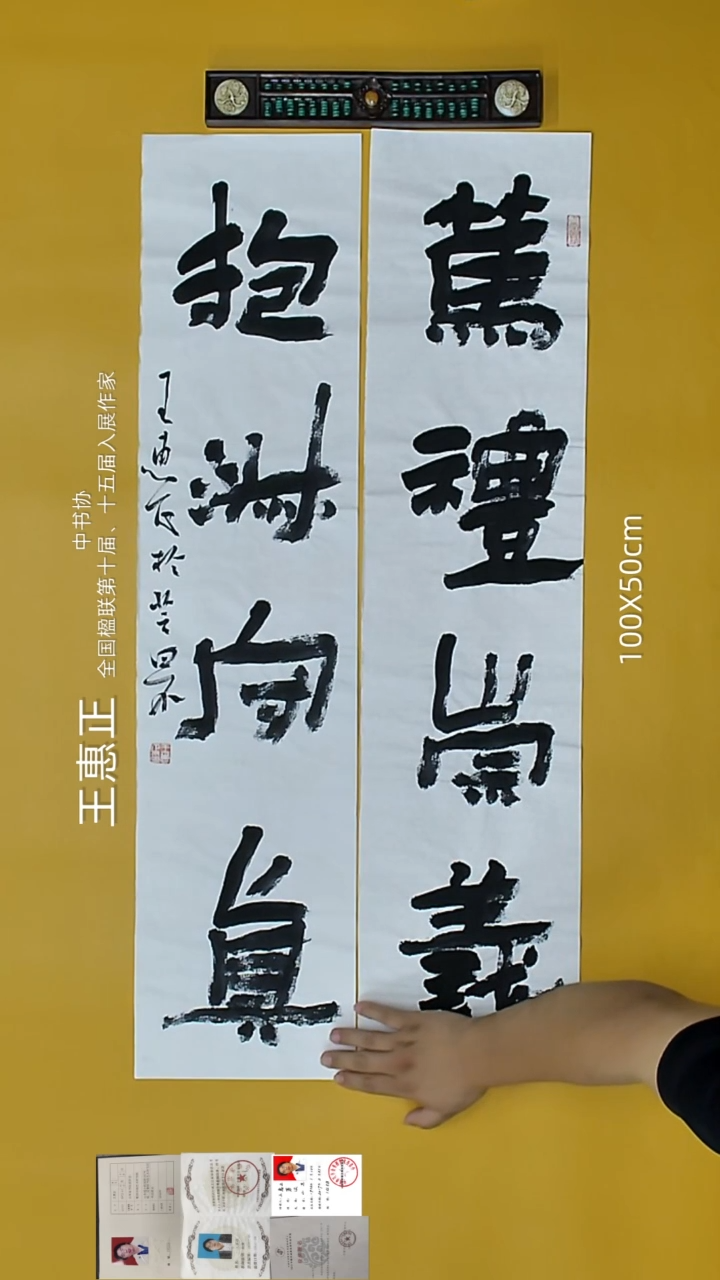 篤禮崇義
抱淑守真
王惠正於
中书协
全国楹联第十届、十五届入展作家
王惠正
100X50cm